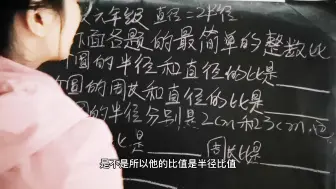 六年级 直径=2半径
下面各题的最简单的整数比
圆的半径和直径的比是
圆的周长和直径的比是
圆的半径分别是2cm和3cm,
比是 周长比是
是不是所以他的比值是半径比值